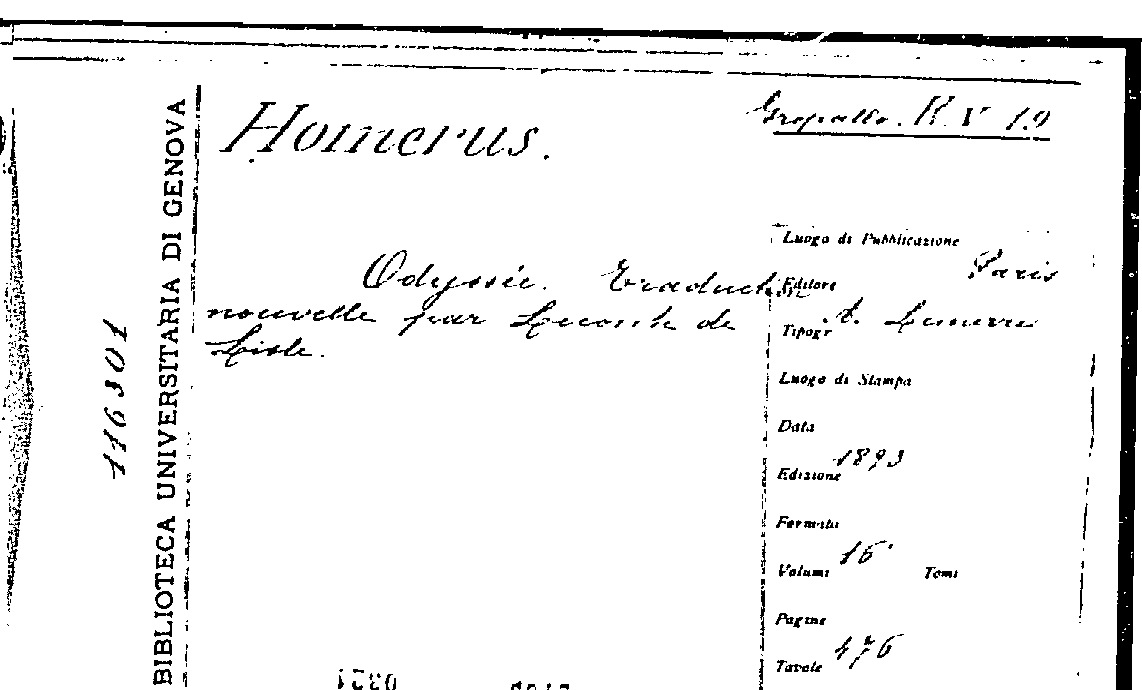 BIBLIOTECA UNIVERSITARIA DI GENOVA
Homerus.
Gropallo. R. V 19
Odyssée. Traduction
nouvelle par Leconte de
Lisle.
Luogo di Pubblicazione
Paris
Editore
A. Lemerre
Tipogr
Luogo di Stampa
Data
1893
Edizione
Formato
16°
Volumi Tomi
Pagine
476
Tavole